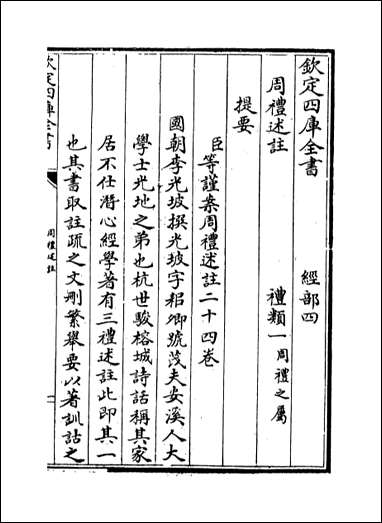 欽定四庫全書　經部四
周禮述註　禮類一周禮之屬
提要
臣等謹案周禮述註二十四卷
國朝李光坡撰光坡字耜卿號茂夫安溪人大
學士光地之弟也杭世駿榕城詩話稱其家
居不仕潛心經學著有三禮述註此即其一
也其書取註疏之文刪繁舉要以著訓詁之
欽定四庫全書
周禮述註
一